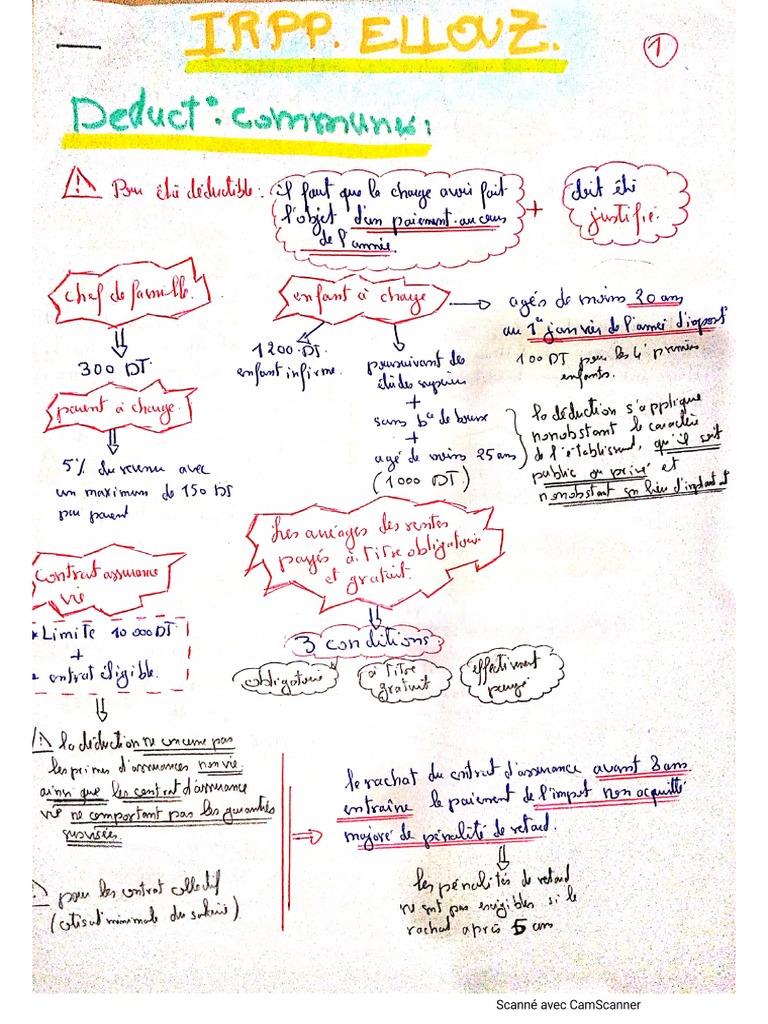 IRPP. ELLOUZ.
1
Deduct°: communes:
Pour être déductible:
il faut que la charge avoir fait
l'objet d'un paiement au cours
de l'année
+
doit être
justifié.
chef de famille.
300 DT.
enfant à charge
1200 DT.
enfant infirme.
poursuivant des
études supérieu
+
sans b de bourse
+
agé de moins 25 ans
(1000 DT)
agés de moins 20 ans
au 1er janvier de l'année d'impost°
100 DT pour les 4 premiers
enfants.
la déduction s'applique
nonobstant le caractère
de l'établissmt, qu'il soit
public ou privé et
nonobstant son lieu d'implantat°
parent à charge.
5% du revenu avec
un maximum de 150 DT
par parent
Les arréages des rentes
payés à titre obligatoire
et gratuit.
3 conditions:
obligatoire
à titre
gratuit
effectivement
payé
contrat assurance
vie
* Limite 10 000 DT.
+
contrat éligible.
la déduction ne concerne pas
les primes d'assurances non vie
ainsi que les contrat d'assurance
vie ne comportant pas les garanties
susvisées.
pour les contrat collectif
(cotisat minimale du salarié).
le rachat du contrat d'assurance avant 8 ans
entraîne le paiement de l'impot non acquitté
majoré de pénalité de retard.
les pénalités de retard
ne snt pas exigibles si le
rachat après 5 ans
Scanné avec CamScanner